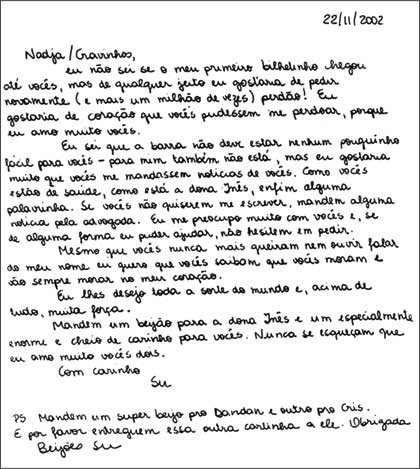 22/11/2002
Nadja/Cravinhos,
eu não sei se o meu primeiro bilhetinho chegou
até vocês, mas de qualquer jeito eu gostaria de pedir
novamente (e mais um milhão de vezes) perdão! Eu
gostaria de coração que vocês pudessem me perdoar, porque
eu amo muito vocês.
Eu sei que a barra não deve estar nenhum pouquinho
fácil para vocês - para mim também não está, mas eu gostaria
muito que vocês me mandassem notícias de vocês. Como vocês
estão de saúde, como está a dona Inês, enfim alguma
palavrinha. Se vocês não quiserem me escrever, mandem alguma
notícia pela advogada. Eu me preocupo muito com vocês e, se
de alguma forma eu puder ajudar, não hesitem em pedir.
Mesmo que vocês nunca mais queiram nem ouvir falar
do meu nome eu quero que vocês saibam que vocês moram e
vão sempre morar no meu coração.
Eu lhes desejo toda a sorte do mundo e, acima de
tudo, muita força.
Mandem um beijão para a dona Inês e um especialmente
enorme e cheio de carinho para vocês. Nunca se esqueçam que
eu amo muito vocês dois.
Com carinho
Su
PS Mandem um super beijo pro Dandan e outro pro Cris.
E por favor entreguem essa outra cartinha a ele. Obrigada
Beijões Su